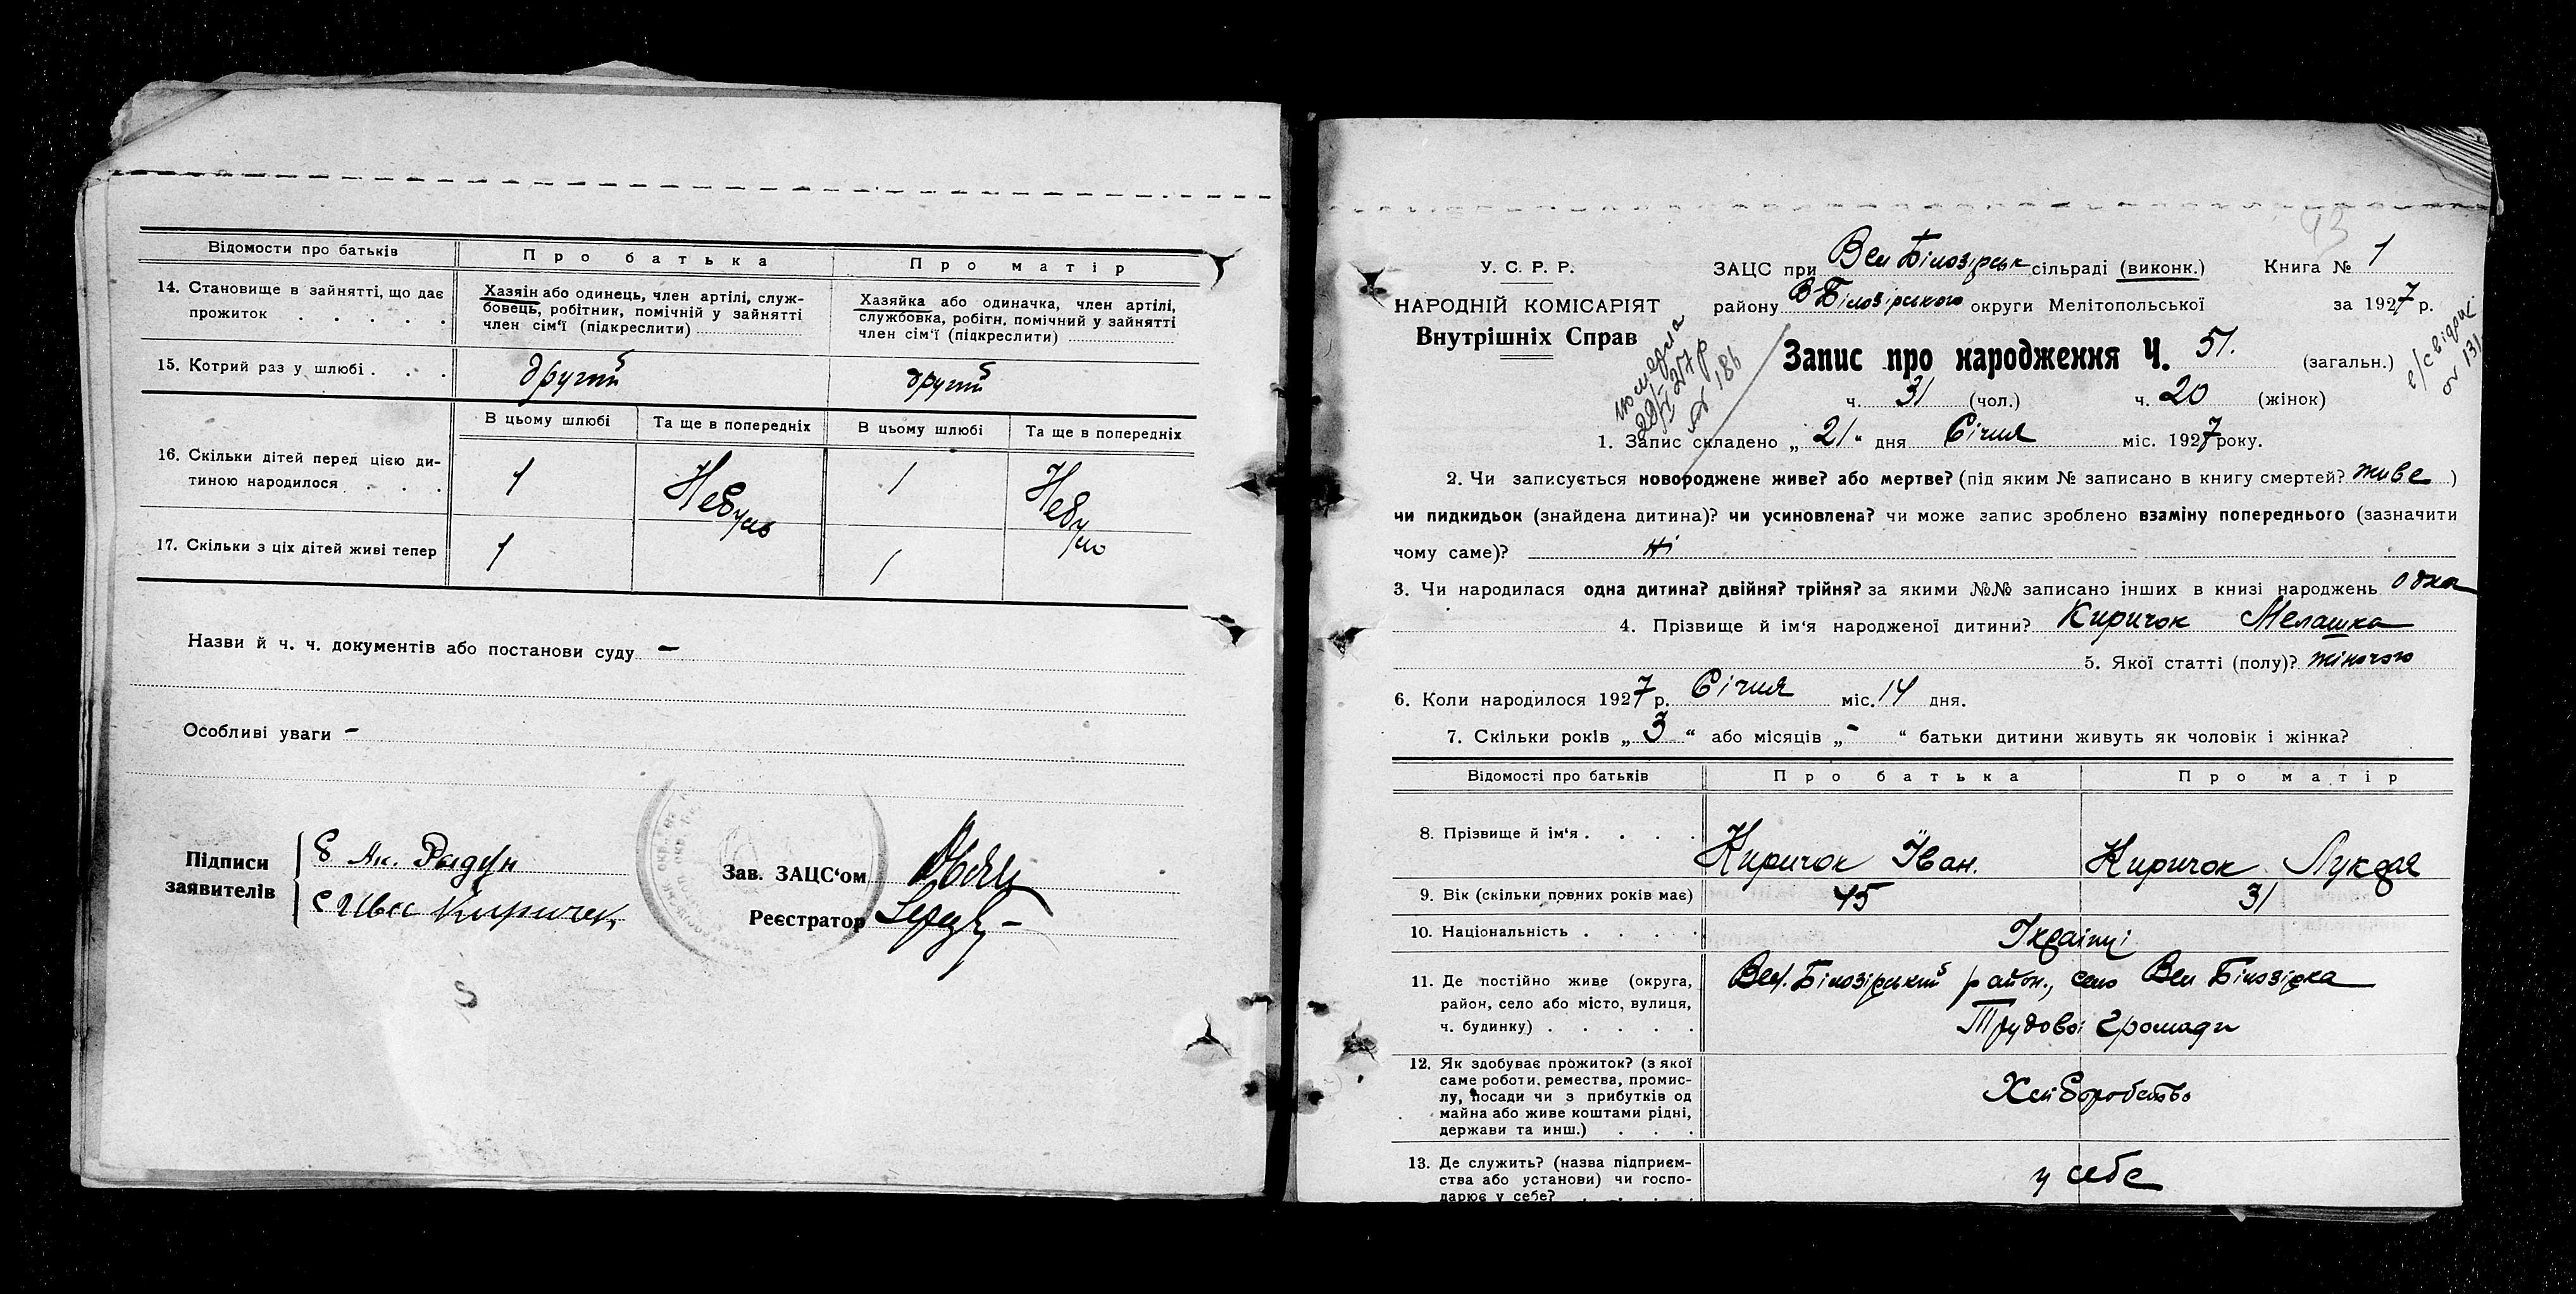 Відомости про батьків
Про батька
Про матір
14. Становище в зайнятті, що дає прожиток . . . . .
Хазяін або одинець, член артілі, служ-
бовець, робітник, помічній у зайнятті
член сім'ї (підкреслити)
Хазяйка або одиначка, член артілі,
службовка, робітн. помічний у зайнятті
член сім'ї (підкреслити)
15. Котрий раз у шлюбі . . .
другий
другий
В цьому шлюбі
Та ще в попередніх
В цьому шлюбі
Та ще в попередніх
16. Скільки дітей перед цією ди-
тиною народилося . . .
1
Небуло
1
Небуло
17. Скільки з ціх дітей живі тепер
1
1
Назви й ч. ч. документів або постанови суду –
Особливі уваги –
Підписи
заявителів
Зав. ЗАЦС'ом
Реєстратор
93
У. С. Р. Р.
НАРОДНІЙ КОМІСАРІЯТ
Внутрішніх Справ
ЗАЦС при Вел Білозірськ сільраді (виконк.)
Книга № 1
району В-Білозірського округи Мелітопольської
за 1927 р.
Запис про народження Ч. 51.
(загальн.)
ч. 31 (чол.)
ч. 20 (жінок)
1. Запис складено „ 21 “ дня Січня міс. 1927 року.
2. Чи записується новороджене живе? або мертве? (під яким № записано в книгу смертей? живе )
чи пидкидьок (знайдена дитина)? чи усиновлена? чи може запис зроблено взаміну попереднього (зазначити
чому саме)? ні
3. Чи народилася одна дитина? двійня? трійня? за якими №№ записано інших в книзі народжень одна
4. Прізвище й ім'я народженої дитини? Киричок Мелашка
5. Якої статті (полу)? жіночого
6. Коли народилося 1927 р. Січня міс. 14 дня.
7. Скільки років „ 3 “ або місяців „ - “ батьки дитини живуть як чоловік і жінка?
Відомості про батьків
Про батька
Про матір
8. Прізвище й ім'я . . . .
Киричок Іван.
Киричок Лукдя
9. Вік (скільки повних років має)
45
31
10. Національність . . . .
Українці
11. Де постійно живе (округа,
район, село або місто, вулиця,
ч. будинку) . . . . .
Вел. Білозірський район., село Вел Білозірка
Трудової Громади
12. Як здобуває прожиток? (з якої
саме роботи, ремества, промис-
лу, посади чи з прибутків од
майна або живе коштами рідні,
держави та инш.) . . .
Хліборобство
13. Де служить? (назва підприєм-
ства або установи) чи госпо-
дарює у себе? . . . .
у себе